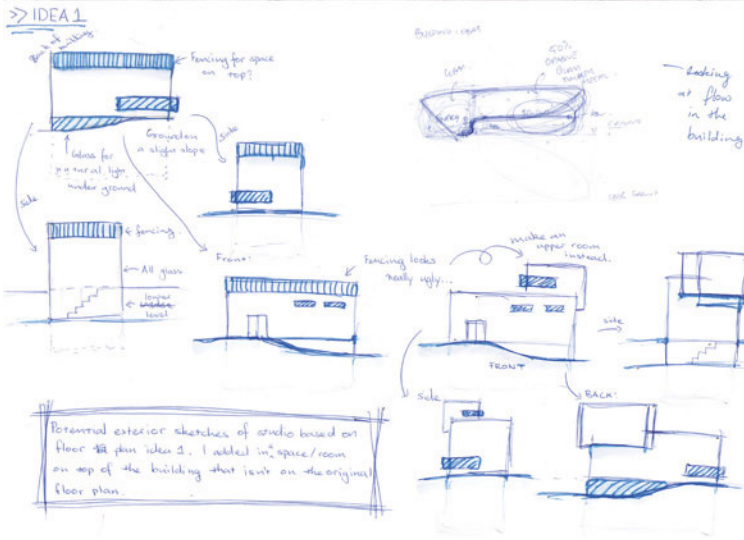 >> IDEA 1
Back of building
Fencing for space
on top?
Ground on
a slight slope
Side
Glass for
natural light
under ground
Side
Fencing
All glass
lower
level
Front:
Fencing looks
really ugly...
make an
upper room
instead.
side
FRONT
side
BACK:
50%
Looking
at flow
in the
building
Potential exterior sketches of studio based on
floor plan idea 1. I added in a space/room
on top of the building that isn't on the original
floor plan.